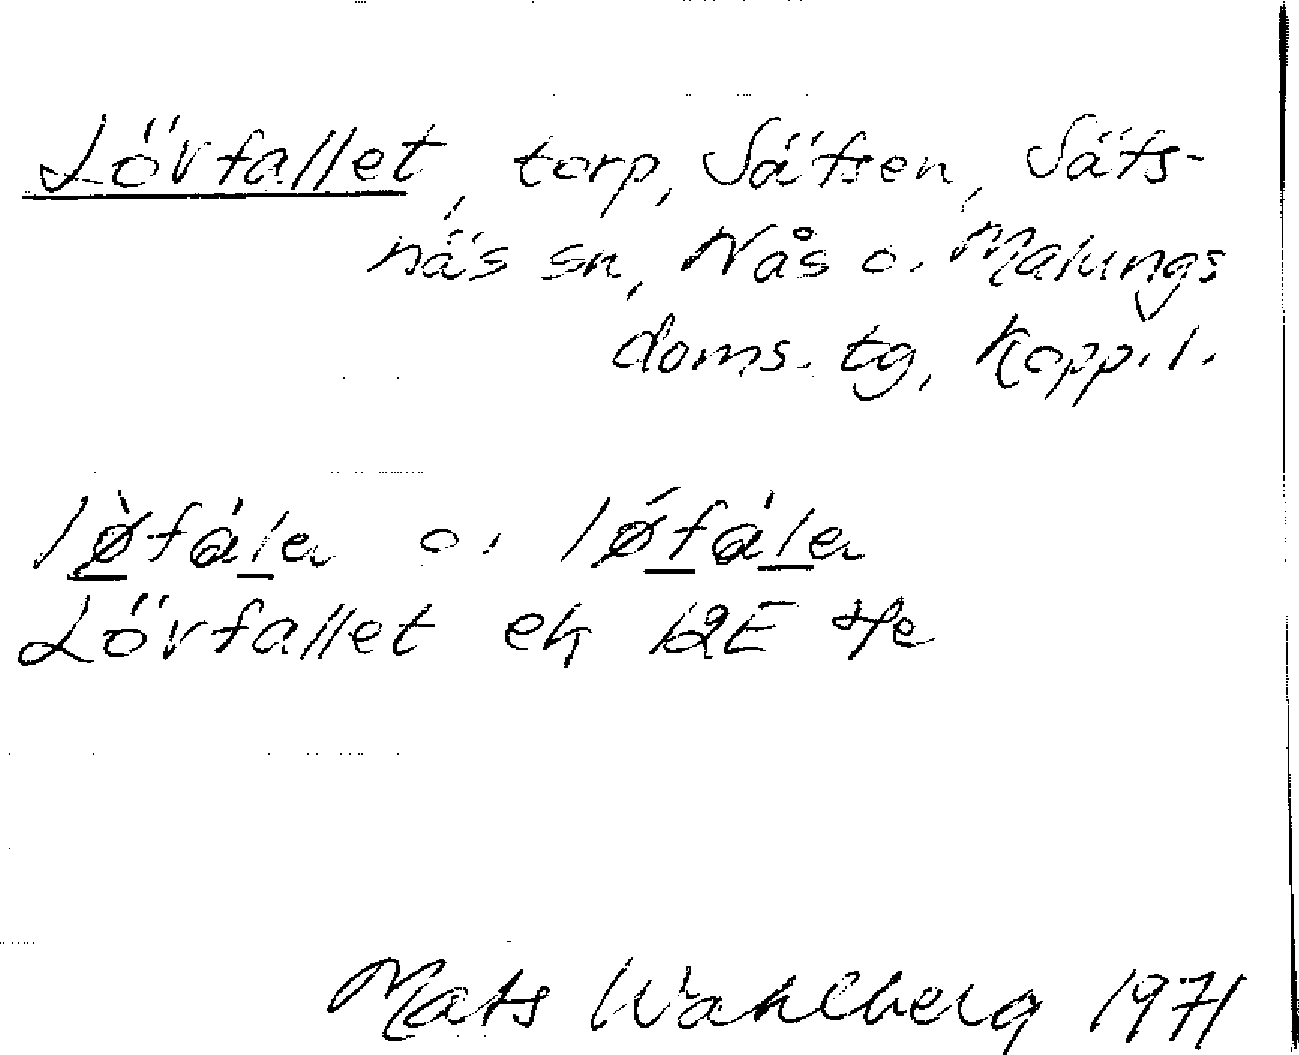 Lövfallet, torp, Sätsen, Säfs-
näs sn, Nås o. Malungs
doms. tg, Kopp. l.
lø̀fála o. lǿfála
Lövfallet ek 12E 4e
Mats Wahlberg 1971